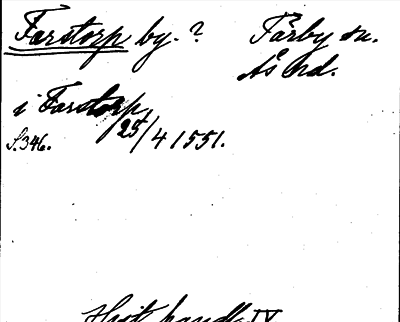 Farstorp by. ?
Färby sn.
Ås hd.
i Farstorp,
25/4 1551.
S. 346.
Hist. handl. IV